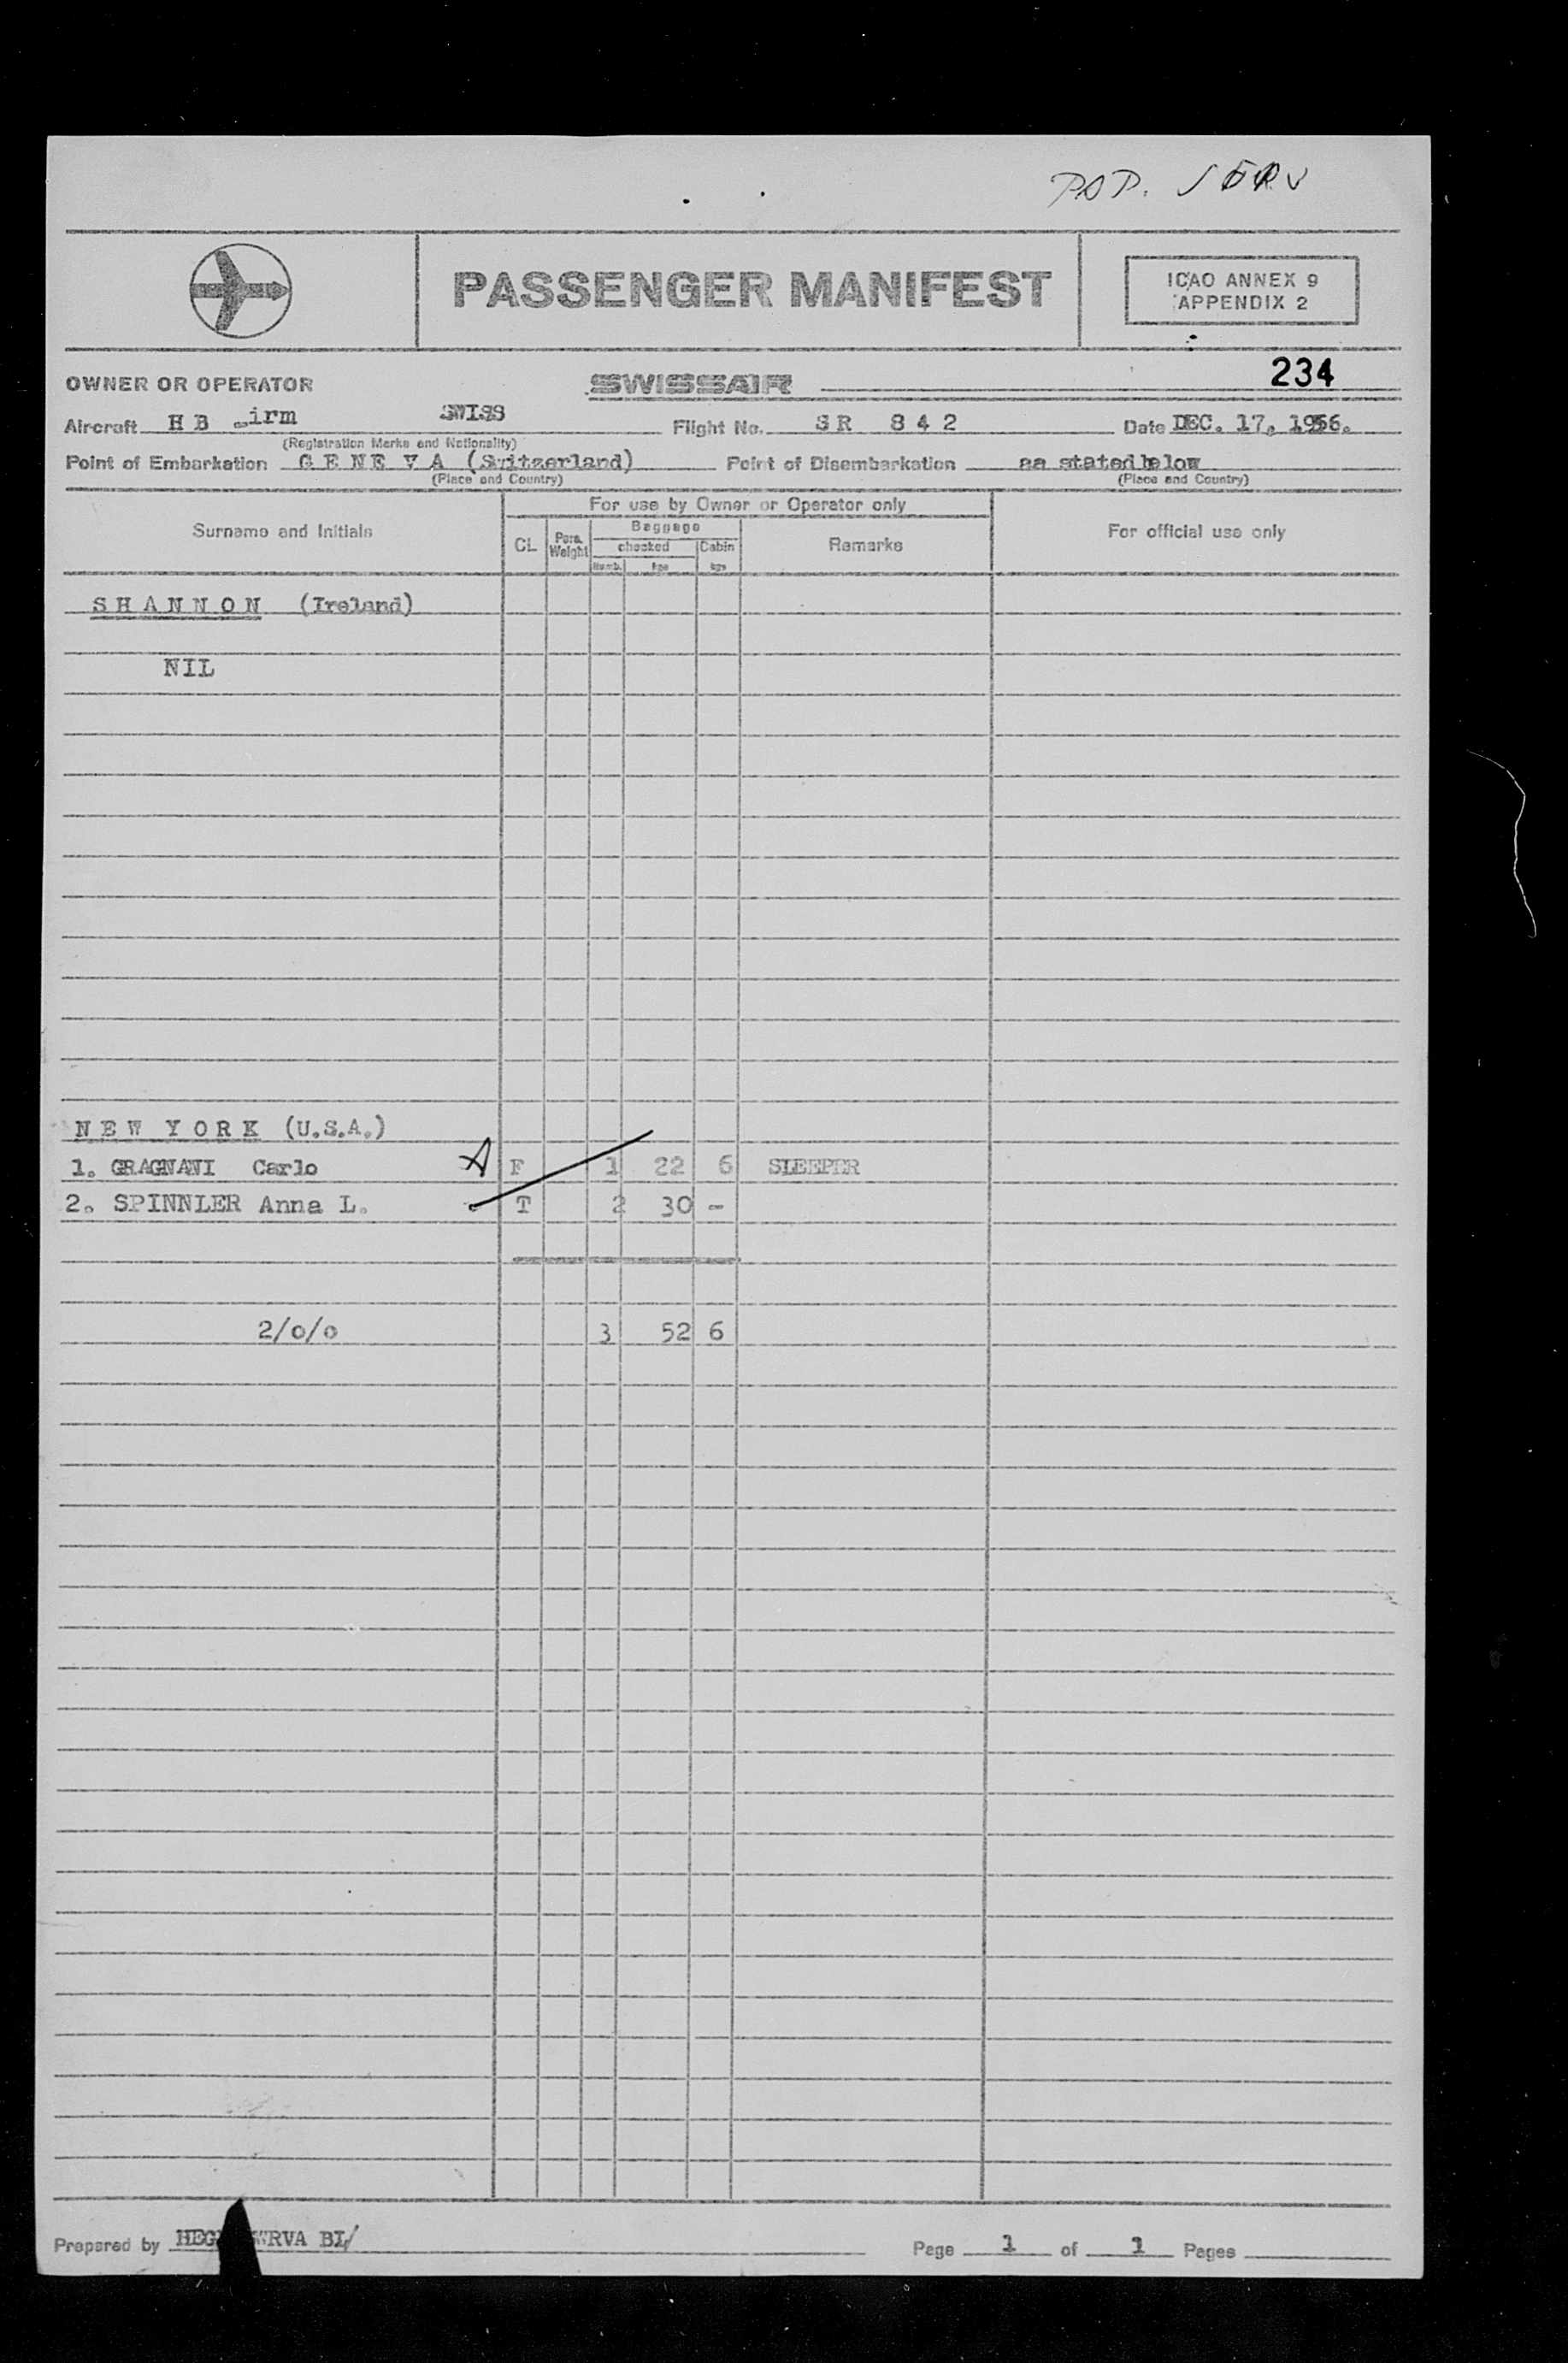 POP. SERV
PASSENGER MANIFEST
ICAO ANNEX 9
APPENDIX 2
234
OWNER OR OPERATOR SWISSAIR
Aircraft H B irm SWISS Flight No. S R 8 4 2 Date DEC. 17, 1956.
(Registration Marks and Nationality)
Point of Embarkation G E N E V A (Switzerland) Point of Disembarkation as stated below
(Place and Country) (Place and Country)
For use by Owner or Operator only
Surname and Initials CL Pers. Weight Baggage Remarks For official use only
checked Cabin
Numb. kgs kgs
S H A N N O N (Ireland)
NIL
N E W Y O R K (U.S.A.)
1. GRAGNANI Carlo A F 1 22 6 SLEEPER
2. SPINNLER Anna L. T 2 30 -
2/o/o 3 52 6
Prepared by BL/ Page 1 of 1 Pages